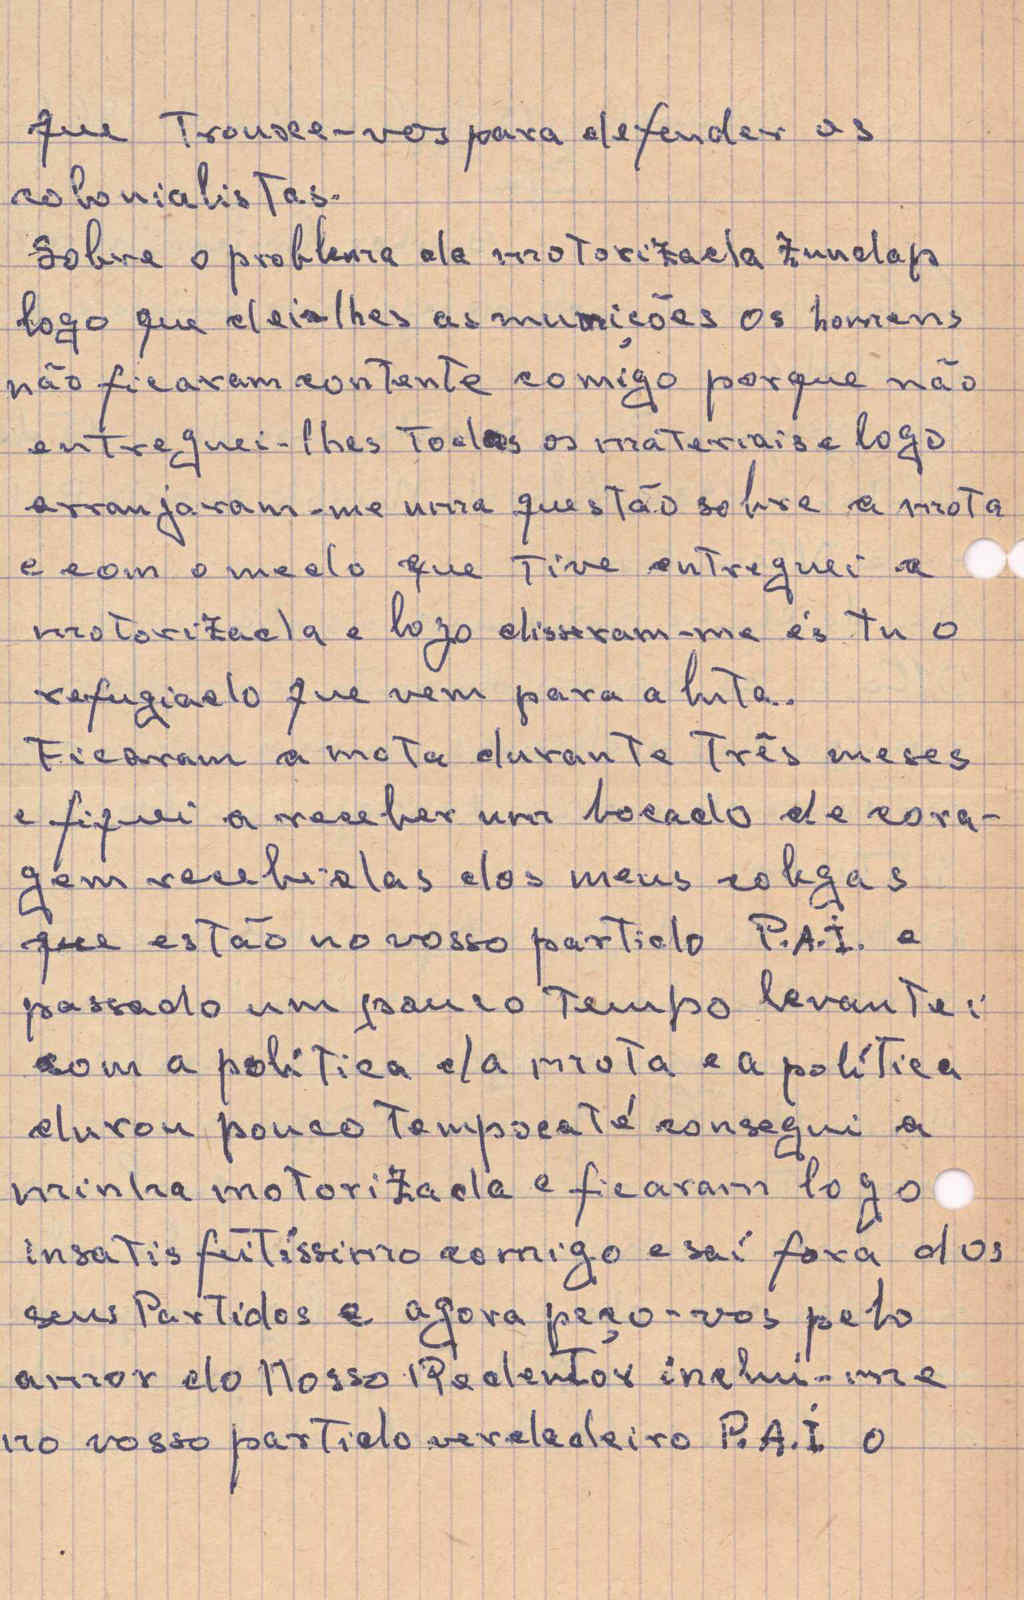 que Trouxe-vos para defender os
colonialistas.
Sobre o problema da motorizada Zundap
logo que dei-lhes as munições os homens
não ficaram contente comigo porque não
entreguei-lhes Todos os materiais e logo
arranjaram-me uma questão sobre a mota
e com o medo que Tive entreguei a
motorizada e logo disseram-me és tu o
refugiado que vem para a luta..
Ficaram a mota durante Três meses
e fiquei a receber um bocado de cora-
gem recebi-elas dos meus colegas
que estão no vosso partido P.A.I. e
passado um pouco Tempo levantei
com a política da mota e a política
durou pouco Tempo e até consegui a
minha motorizada e ficaram logo
insatisfeitíssimo comigo e saí fora dos
seus Partidos e agora peço-vos pelo
amor do Nosso Redentor inclui-me
no vosso partido verdadeiro P.A.I o